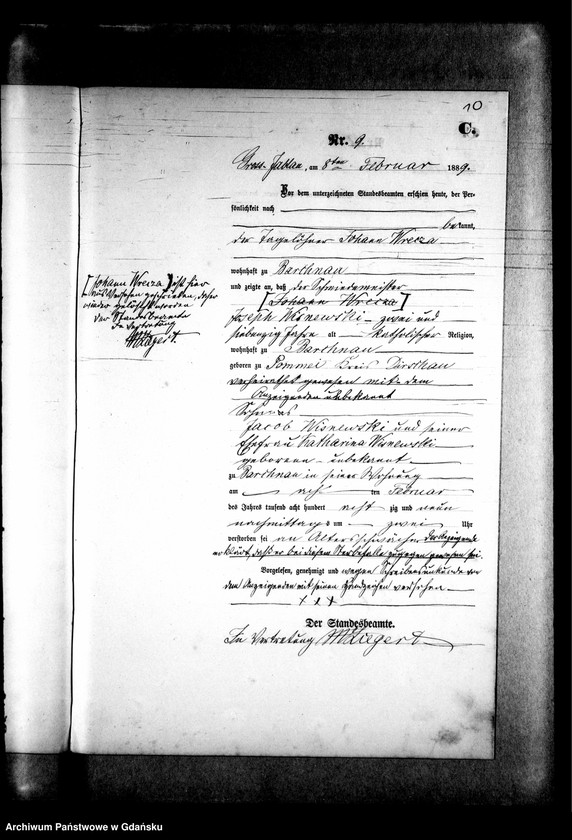 10
C.
Nr. 9.
Gross Jablau, am 8ten Februar 1889.
Vor dem unterzeichneten Standesbeamten erschien heute, der Per-
sönlichkeit nach
bekannt,
der Tagelöhner Johann Wrecza
wohnhaft zu Barchnau
und zeigte an, daß der Schmiedemeister
[Johann Wrecza]
Joseph Wisnewski – zwei und
siebenzig Jahre alt – katholischer Religion,
wohnhaft zu Barchnau
geboren zu Pommei Kreis Dirschau
verheirathet gewesen mit dem
Anzeigenden unbekannt
Sohn des
Jacob Wisnewski und seiner
Ehefrau Katharina Wisnewski
geborene – unbekannt
zu Barchnau in seiner Wohnung
am acht ten Februar
des Jahres tausend acht hundert acht zig und neun
nachmittags um zwei Uhr
verstorben sei an Altersschwäche. Der Anzeigende
erklärt, daß er bei diesem Sterbefalle zugegen gewesen sei.
Vorgelesen, genehmigt und wegen Schreibensunkunde von
dem Anzeigenden mit seinen Handzeichen versehen
+ + +
Der Standesbeamte.
In Vertretung
[Johann Wrecza] ist hier
aus Versehen geschrieben, daher
wieder gelöscht worden
Der Standesbeamte
In Vertretung
Archiwum Państwowe w Gdańsku